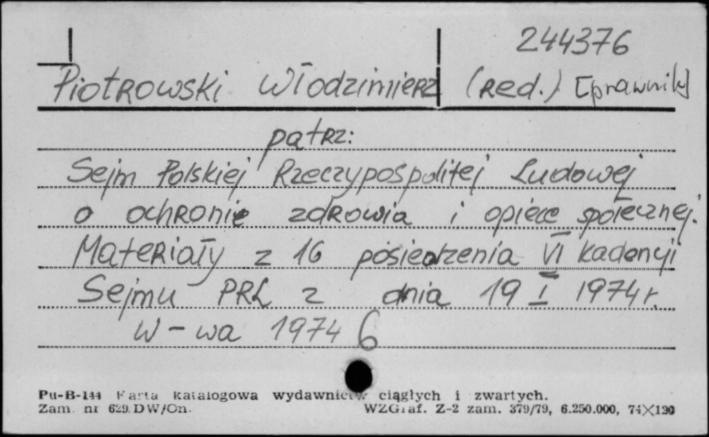 244376
Piotrowski Włodzimierz (red.) [prawnik]
patrz:
Sejm Polskiej Rzeczypospolitej Ludowej
o ochronie zdrowia i opiece społecznej.
Materiały z 16 posiedzenia VI kadencji
Sejmu PRL z dnia 19 I 1974 r.
W-wa 1974 6
Pu-B-144 Karta katalogowa wydawnictw ciągłych i zwartych.
Zam. nr 629 DW/On. WZGraf. Z-2 zam. 379/79, 6.250.000, 74×120